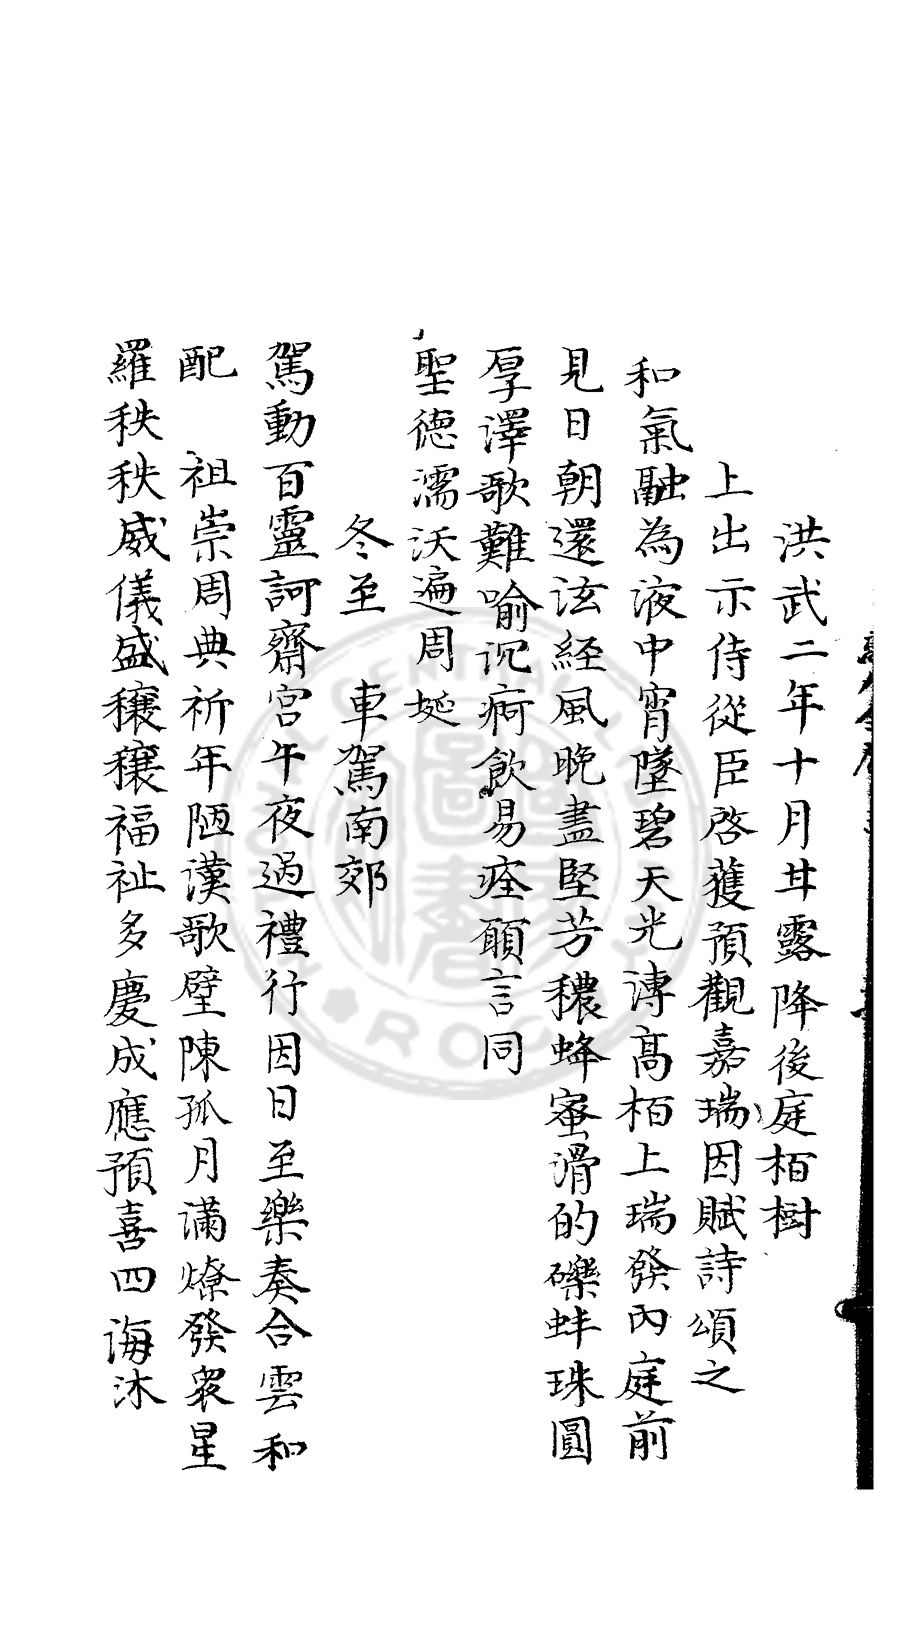 洪武二年十月甘露降後庭栢樹
上出示侍從臣啓獲預觀嘉瑞因賦詩頌之
和氣融為液中宵墜碧天光漙髙栢上瑞發內庭前
見日朝還泫経風晚盡堅芳穠蜂蜜滑的礫蚌珠圓
厚澤歌難喻沉痾飲易痊願言同
聖德濡沃遍周埏
冬至　車駕南郊
駕動百靈訶齋宮午夜過禮行因日至樂奏合雲和
配　祖崇周典祈年陋漢歌璧陳孤月滿燎發衆星
羅秩秩威儀盛穰穰福祉多慶成應預喜四海沐